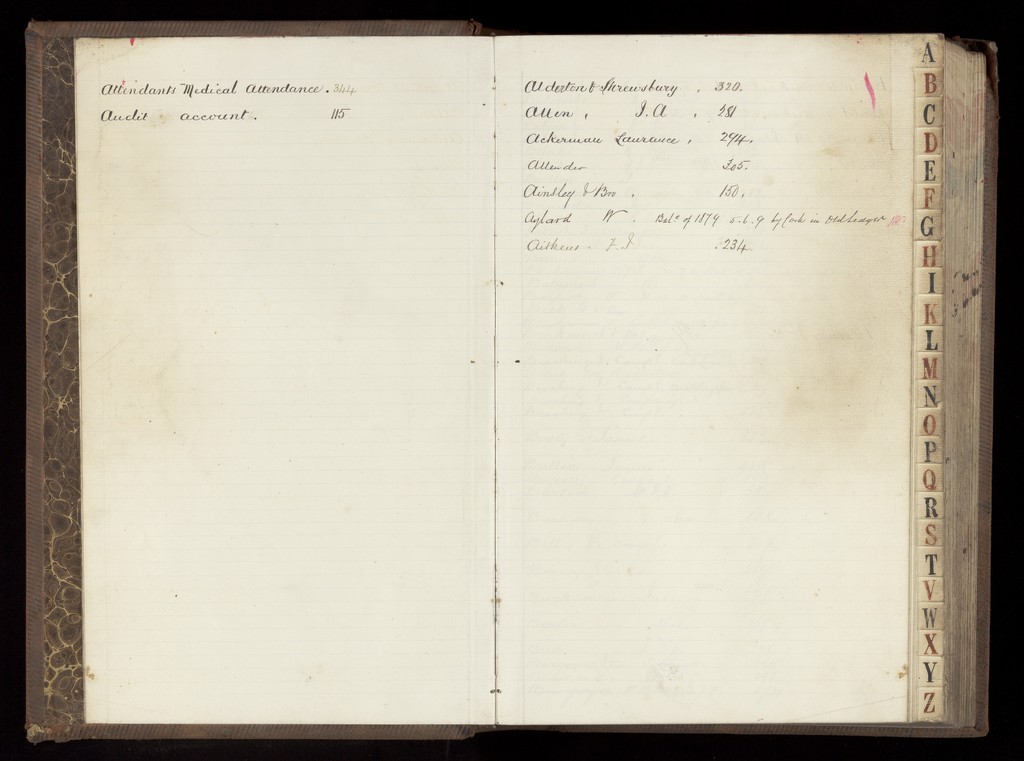 Attendants Medical Attendance. 344
Audit account. 115
Alderton & Shrewsbury . 320.
Allen, J. A . 281
Ackerman Laurance, 294.
Allender 305.
Ainsley & Bro . 150.
Aylard W. Bal.ce of 1879 5.6.9 by Cash in Old Ledger
Aitkens. F. J .234.
A
B
C
D
E
F
G
H
I
K
L
M
N
O
P
Q
R
S
T
V
W
X
Y
Z